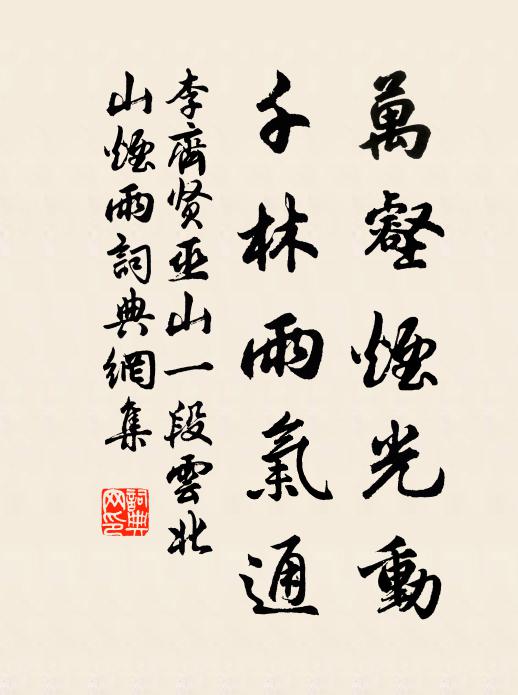 萬壑煙光動
千林雨氣通
李齊賢巫山一段雲北
山煙雨詞典網集
詞典网印